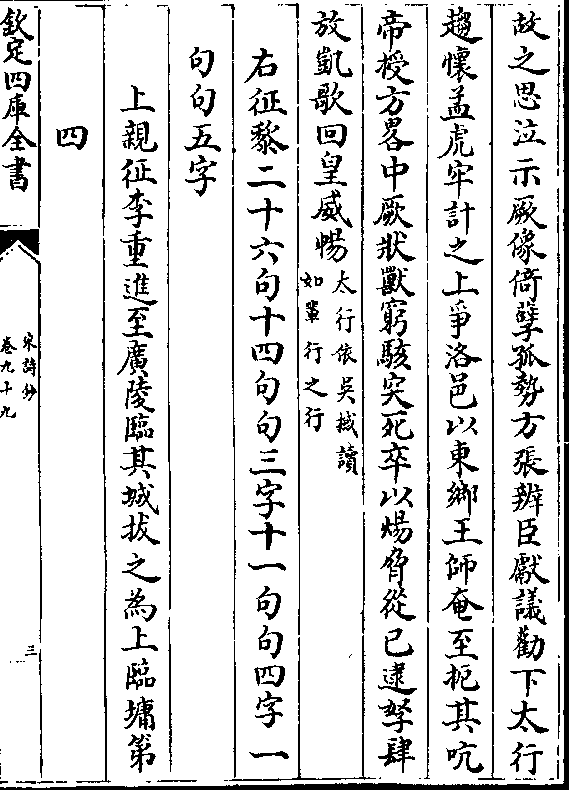 故之思泣示厥像倚孽孤勢方張辨臣獻議勸下太行
趨懷孟虎牢計之上爭洛邑以東鄉王師奄至扼其吭
帝授方畧中厥狀獸窮駭突死卒以煬脅從已逮孥肆
放凱歌回皇威暢太行依吳棫讀
如輩行之行
右征黎二十六句十四句句三字十一句句四字一
句句五字
上親征李重進至廣陵臨其城拔之為上臨墉第
四
欽定四庫全書
宋詩鈔
卷九十九
三